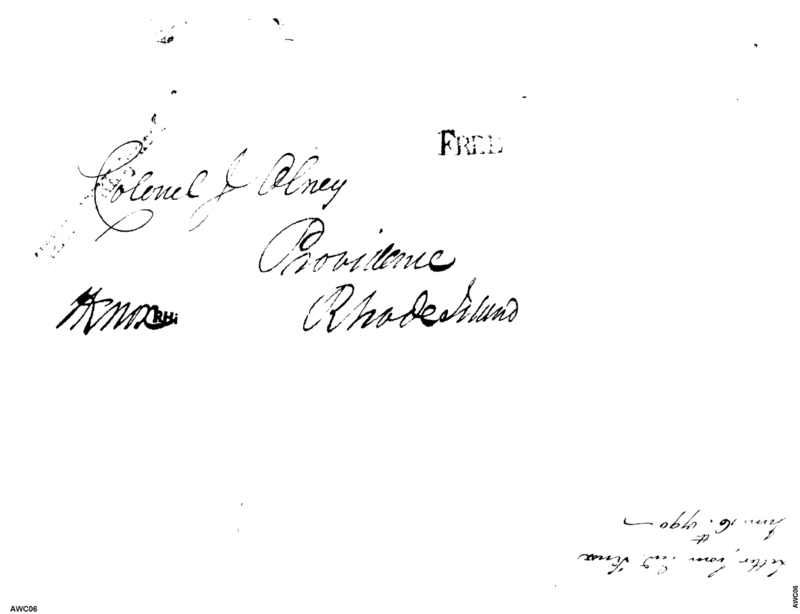 FREE
Colonel J Olney
Providence
HKnox RHi
Rhode Island
Letter from Knox
Jun. 16. 1790
AWC06
AWC06